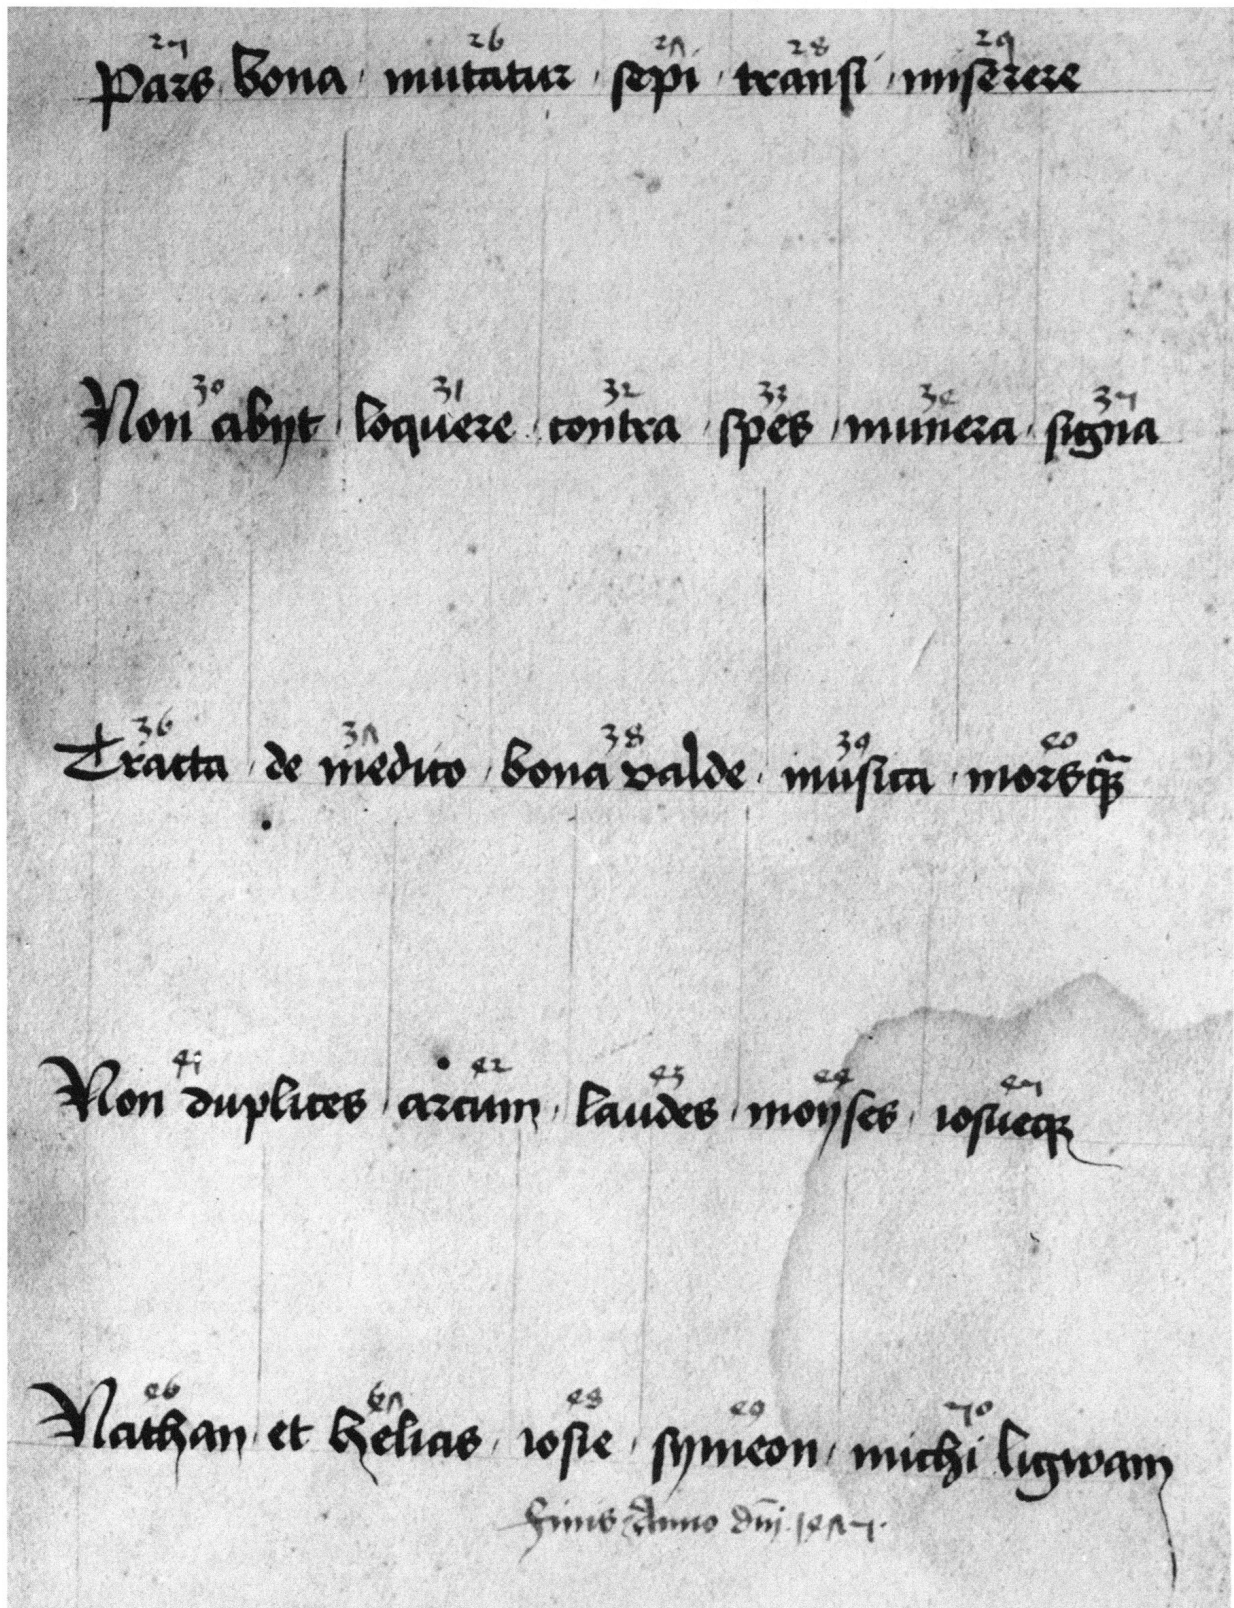 25 26 27 28 29
Pars bona mutatur sepi transi miserere
30 31 32 33 34 35
Non abijt loquere contra spes munera signa
36 37 38 39 40
Tracta de medico bona valde musica morsq
41 42 43 44 45
Non duplices arcum laudes moyses iosueq
46 47 48 49 50
Nathan et helias iosie symeon michi ligwam
Finis Anno dnj 1475